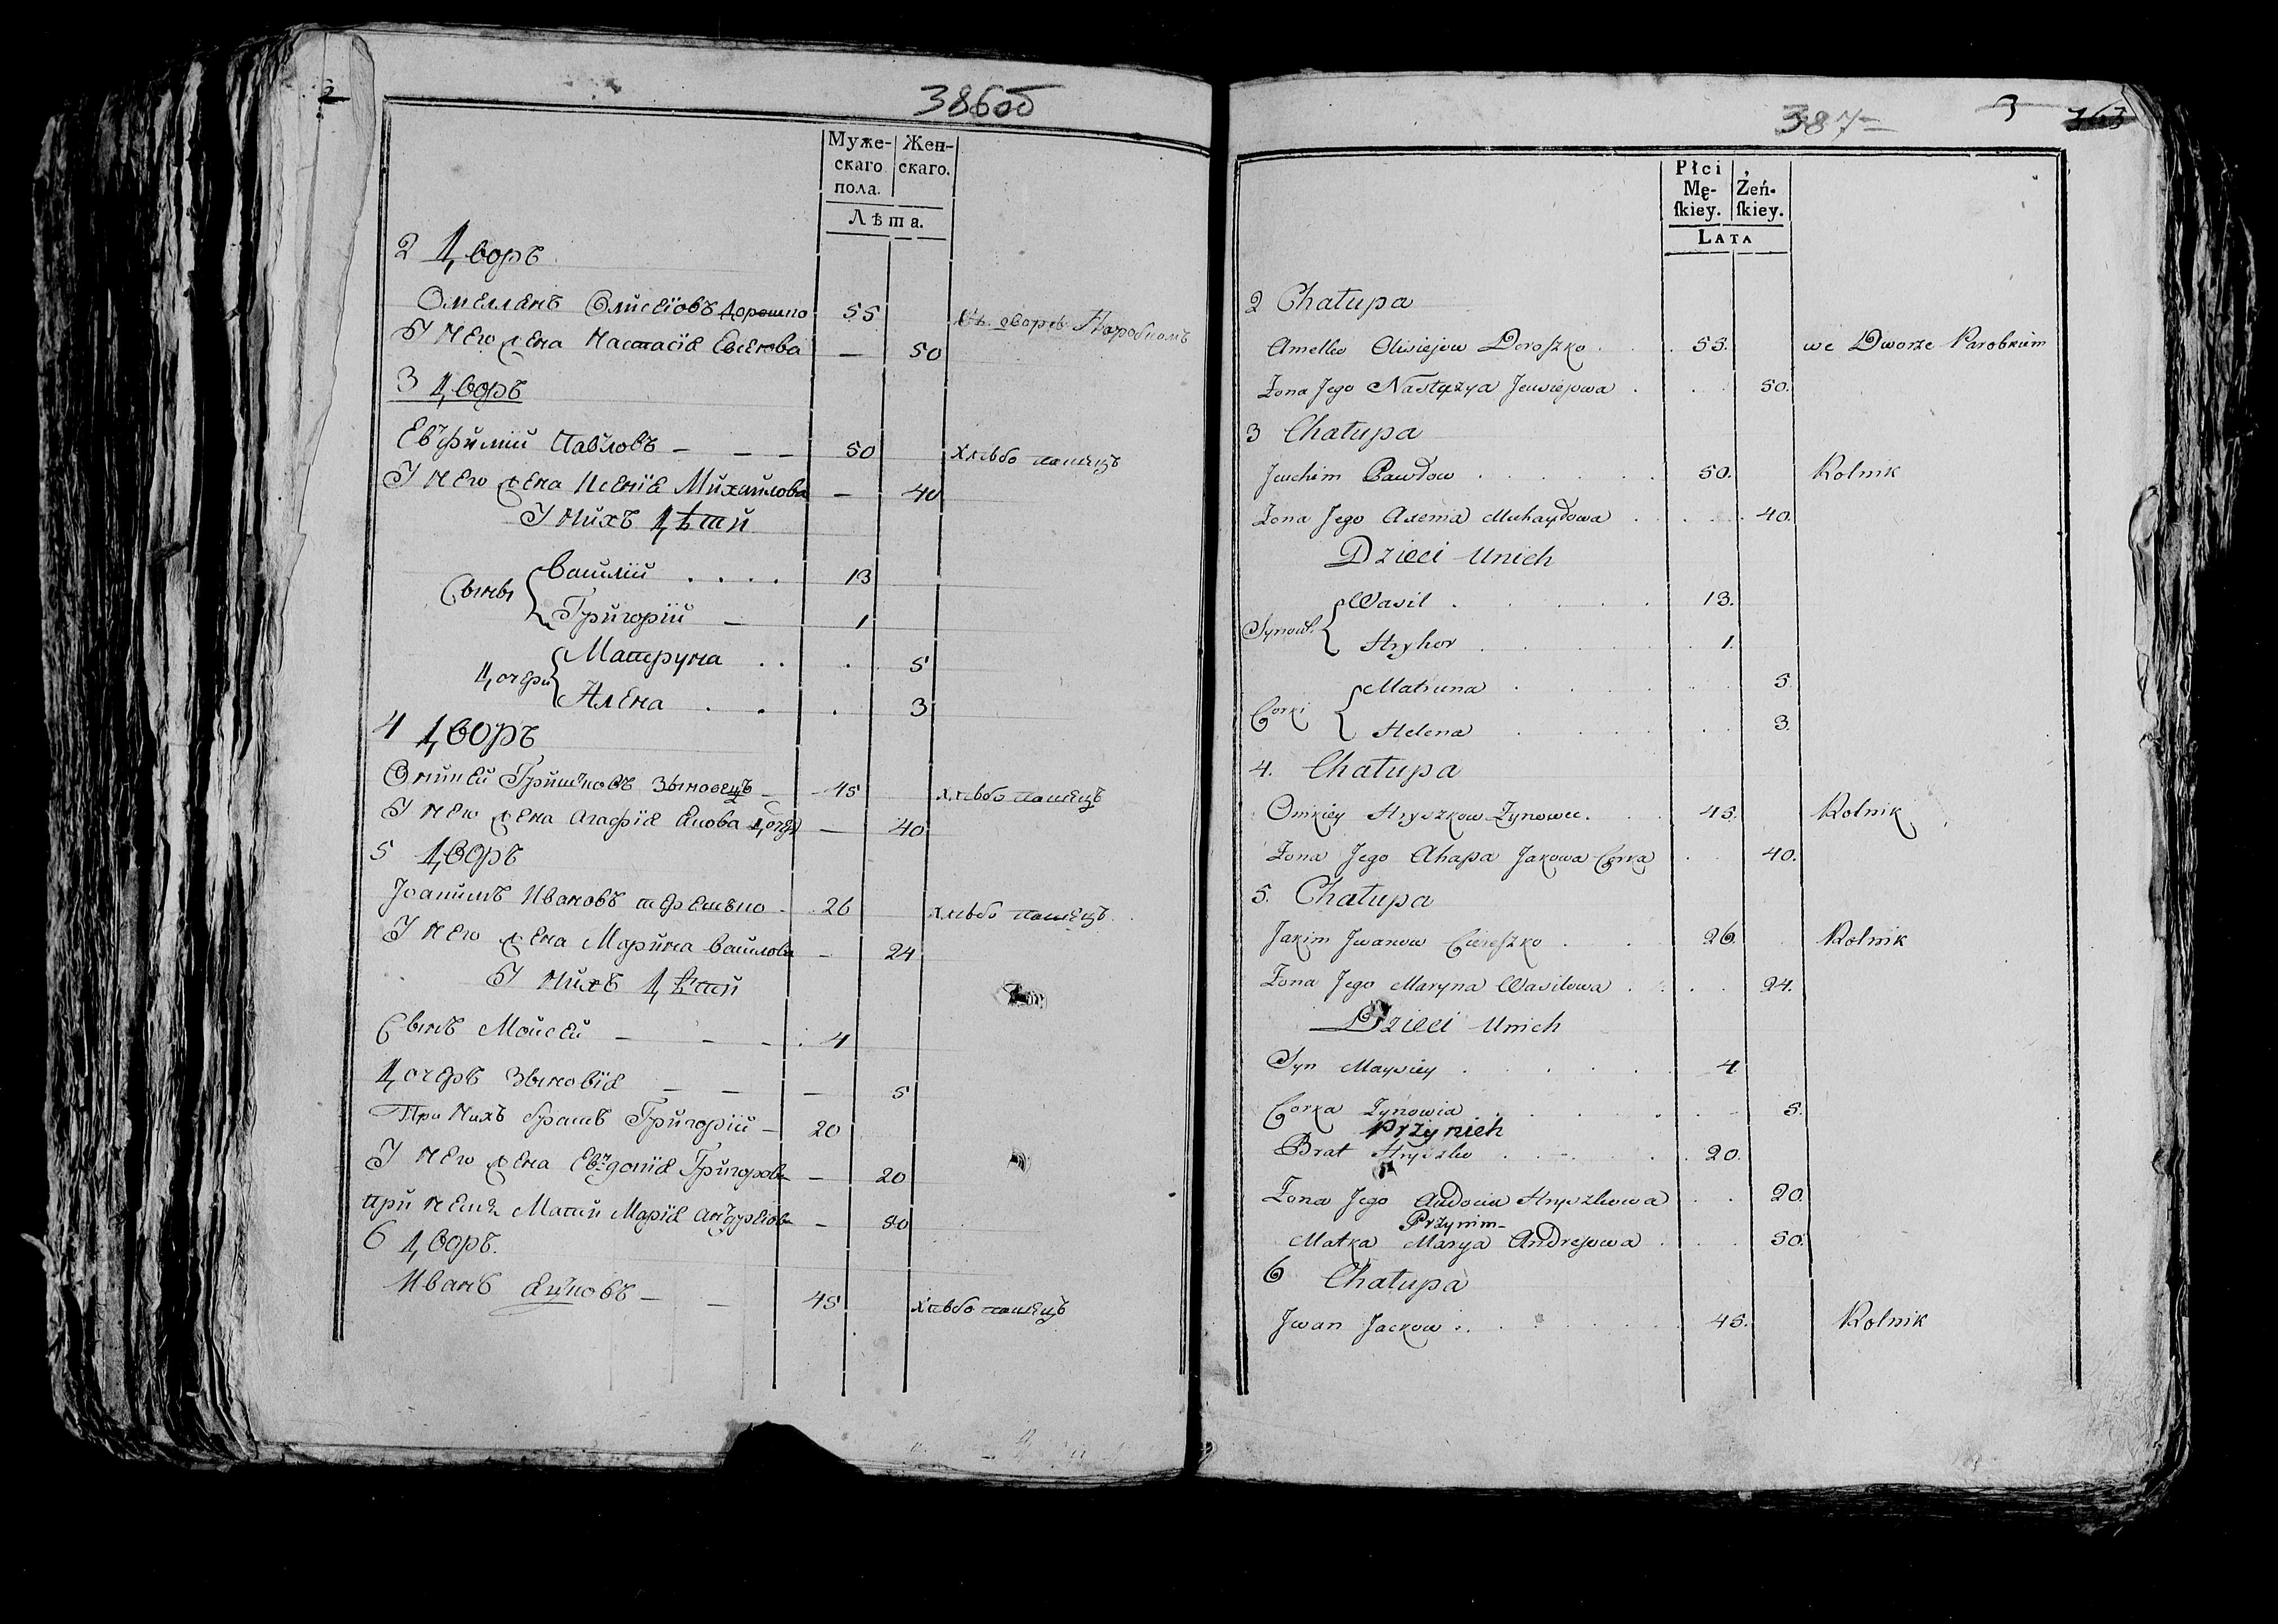 2
386об
Муже- Жен-
скаго скаго.
пола.
Лѣта.
2 Дворъ
Омелянъ Олисѣіовъ Дорошко 55 Въ дворѣ Паробкомъ
У него жена Настасія Евсеева — 50
3 Дворъ
Евъфимій Павловъ — — — 50 хлѣбо пашецъ
У него жена Ксенія Михайлова — 40
У нихъ Дѣти
Сыны Василій . . . . 13
Григорій — 1
Дочери Матруна . . . 5
Алена . . . 3
4 Дворъ
Оникей Гришковъ Зыновецъ — 45 хлѣбо пашецъ
У него жена Агафія Якова Дочер — 40
5 Дворъ
Іоакимъ Ивановъ 26 хлѣбо пашецъ
У него жена Марина Василова — 24
У нихъ Дѣти
Сынъ Мойсей — — — 4
Дочеръ Зыновія — — — 5
При нихъ братъ Григорій — 20
У него жена Евъдокія Григорова — 20
при немъ Мати Марія Анъдреіова — 50
6 Дворъ.
Иванъ Яцковъ — — 45 хлѣбо пашецъ
387
3
363
Płci
Mę- Żeń-
ſkiey. ſkiey.
LATA
2 Chałupa
Amelko Olisiejow Doroszko . . 55. we Dworze Parobkiem
Żona Jego Nastazya Jewsiejowa . . . 50.
3 Chałupa
Jeuchim Pawłow . . . . . . 50. Rolnik
Żona Jego Axenia Michayłowa . . . . 40.
Dzieci Unich
Synow. Wasil . . . . . 13.
Hryhor . . . . . 1.
Corki Matruna . . . . . 5.
Helena . . . . . 3.
4. Chałupa
Onikiey Hryszkow Zynowec. . . 45. Rolnik
Żona Jego Ahapa Jakowa Corka . . 40.
5. Chałupa
Jakim Jwanow Ciereszko . . 26. Rolnik
Żona Jego Maryna Wasilowa . . . . 24.
Dzieci Unich
Syn Maysiey . . . . . 4
Corka Zynowia . . . . . 5.
Przy nich
Brat Hryszko . . . . . 20.
Żona Jego Audocia Hryszkowa . . 20.
Przynim-
Matka Marya Andrejowa . . . 50.
6 Chałupa
Jwan Jackow . . . . . . 45. Rolnik